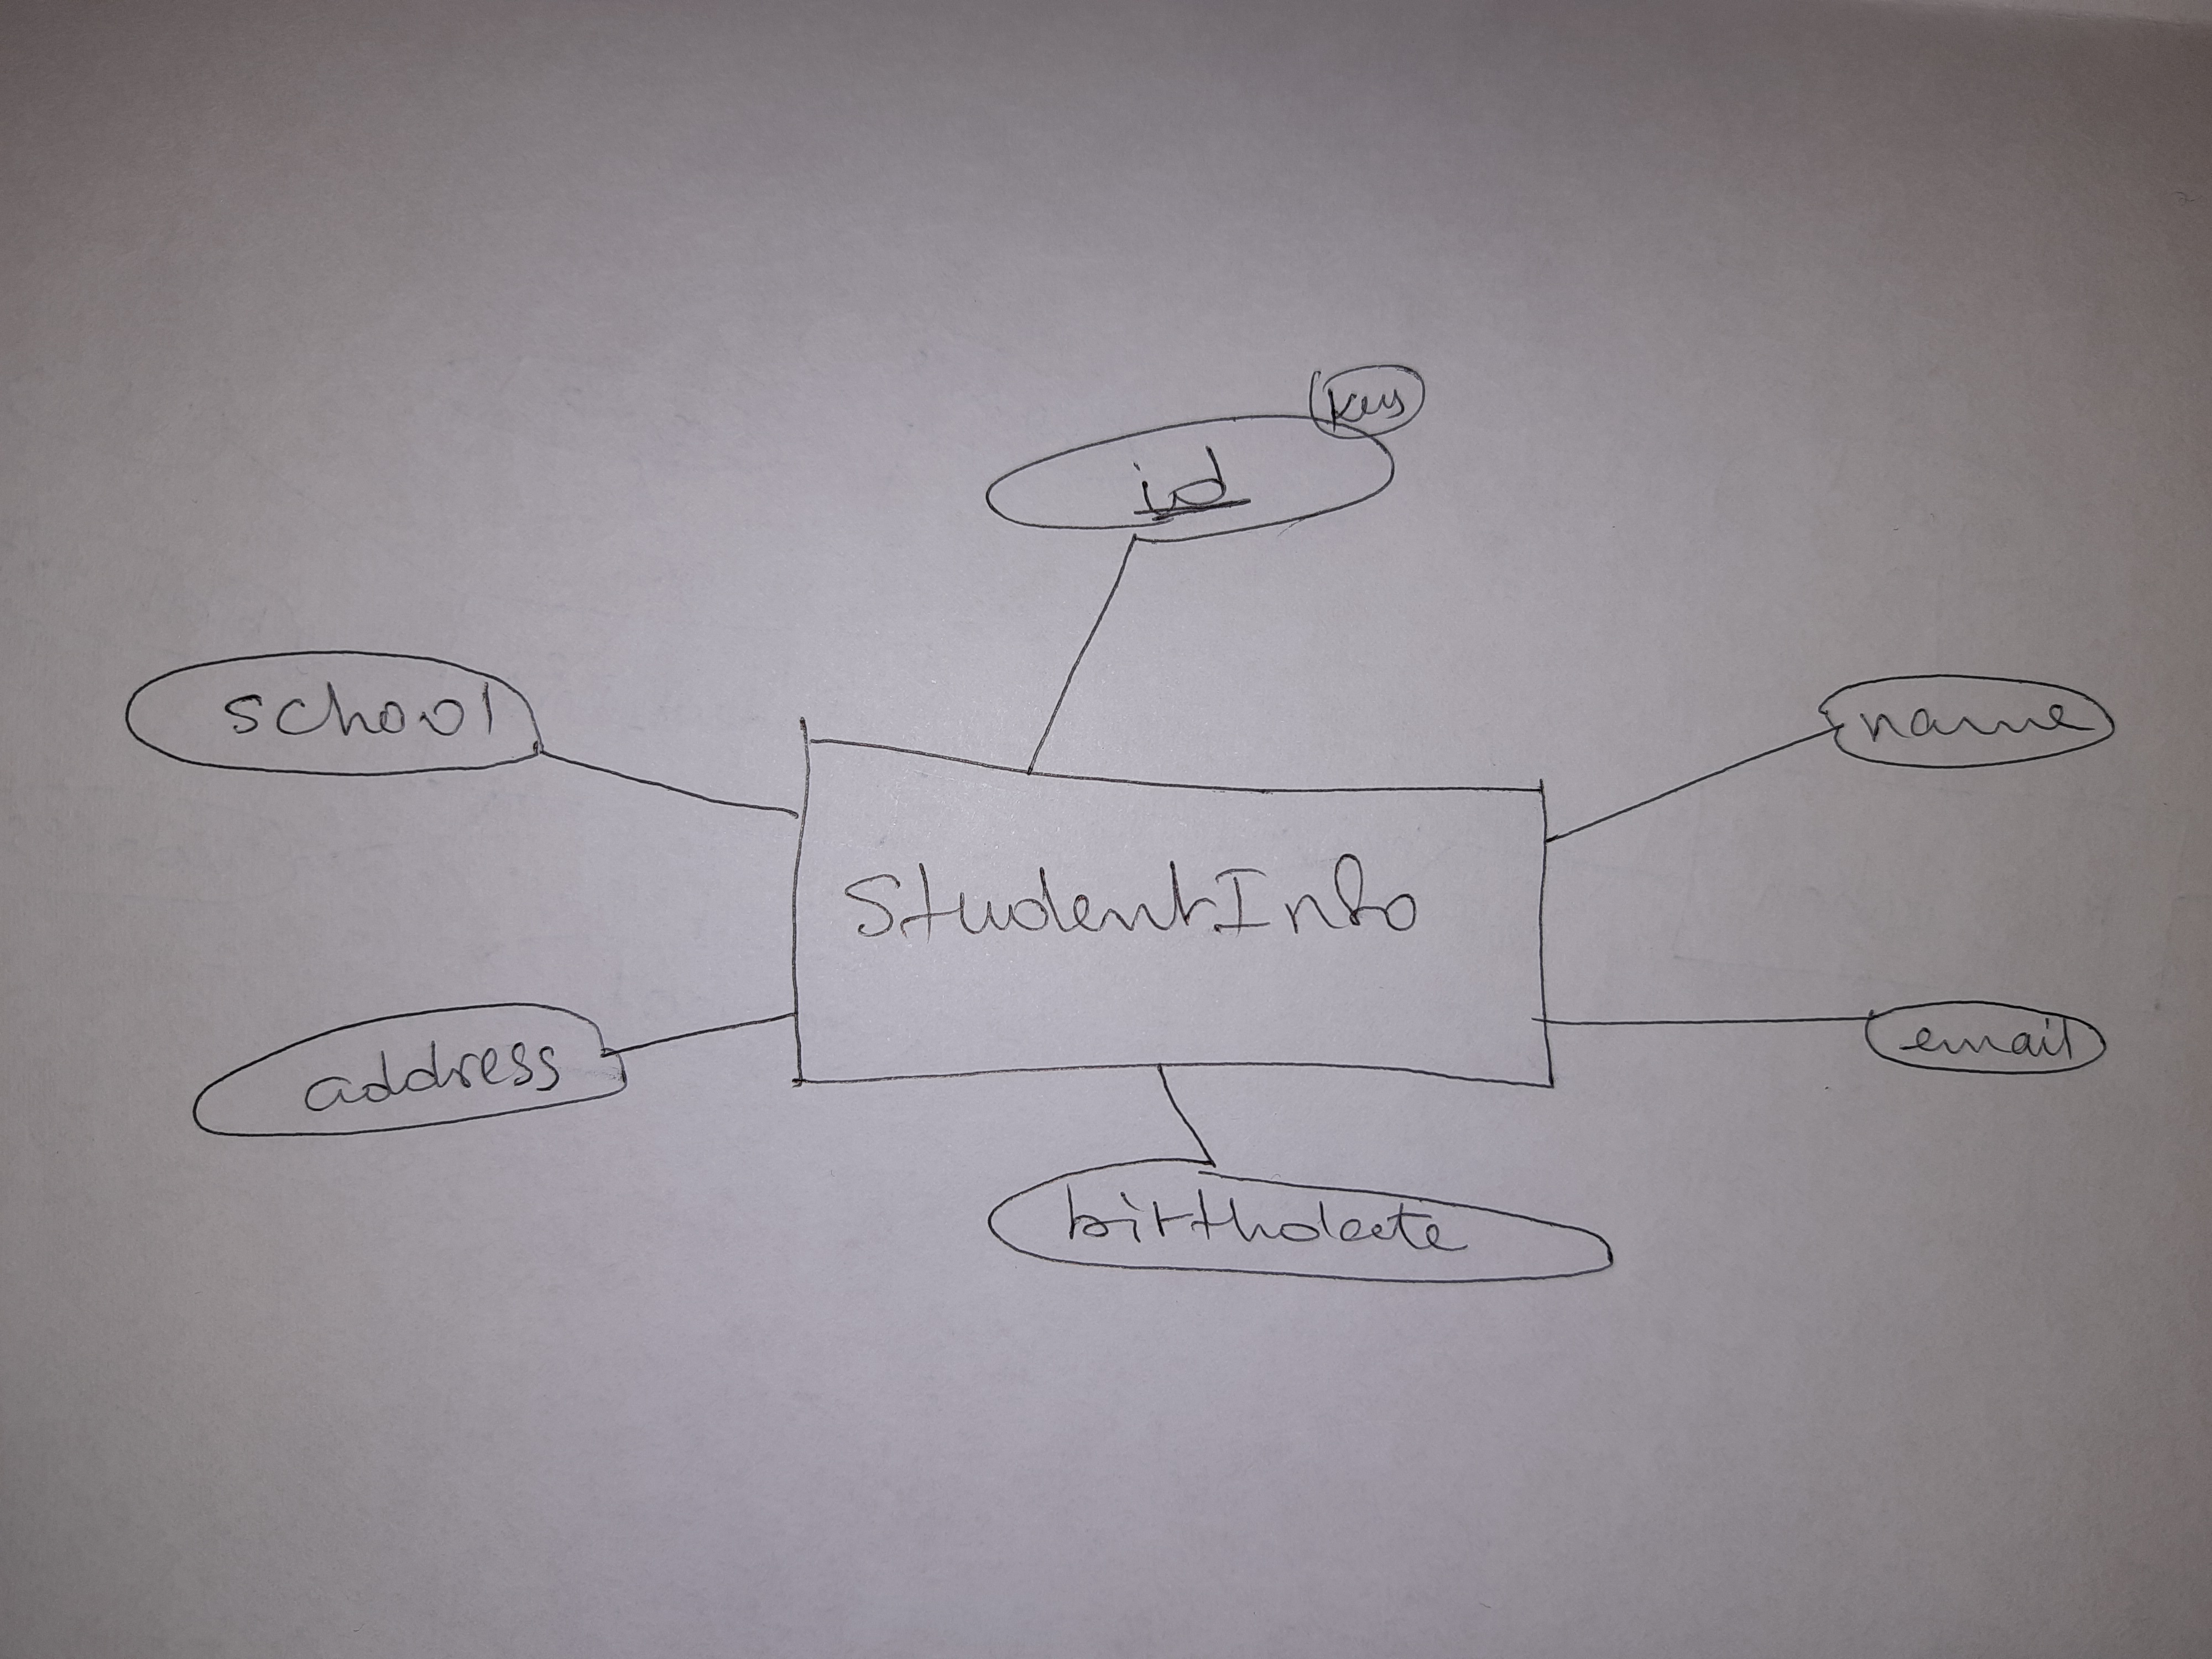 key
id
school
name
StudentInfo
address
email
birthdate